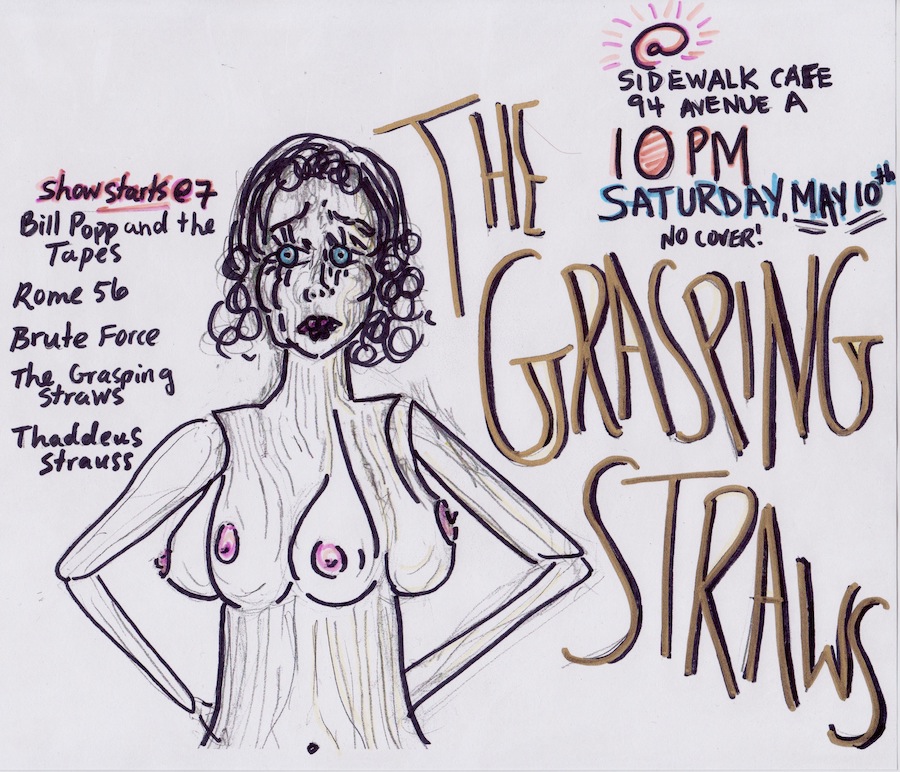 @
SIDEWALK CAFE
94 AVENUE A
10PM
SATURDAY, MAY 10th
NO COVER!
THE
GRASPING
STRAWS
show starts @ 7
Bill Popp and the
Tapes
Rome 56
Brute Force
The Grasping
Straws
Thaddeus
Strauss